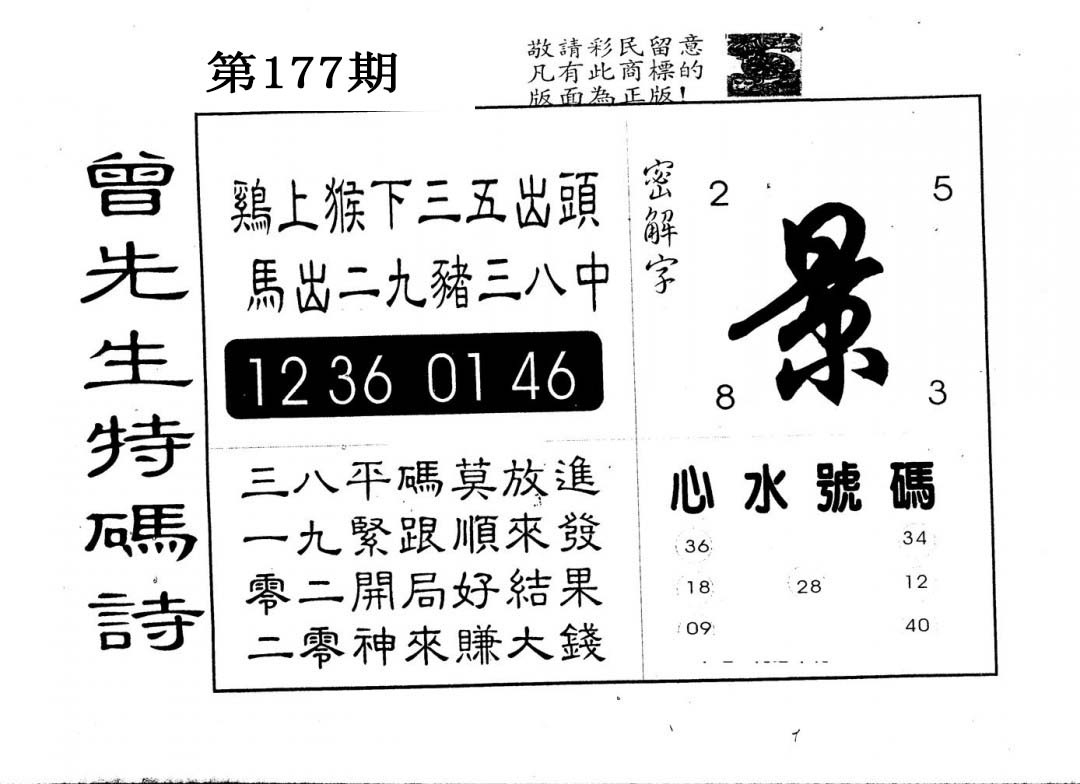 第177期
敬請彩民留意
凡有此商標的
版面為正版!
曾先生特碼詩
鷄上猴下三五出頭
馬出二九豬三八中
12 36 01 46
三八平碼莫放進
一九緊跟順來發
零二開局好結果
二零神來賺大錢
密解字
2 5
景
8 3
心水號碼
36 34
18 28 12
09 40